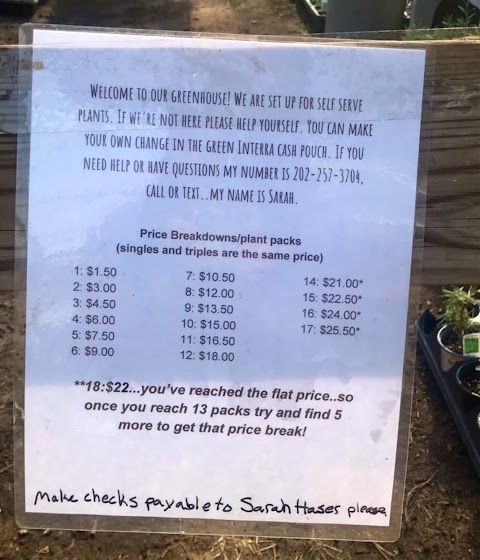 Welcome to our greenhouse! We are set up for self serve
plants. If we're not here please help yourself. You can make
your own change in the green Interra cash pouch. If you
need help or have questions my number is 202-257-3704,
call or text..my name is Sarah.
Price Breakdowns/plant packs
(singles and triples are the same price)
1: $1.50
2: $3.00
3: $4.50
4: $6.00
5: $7.50
6: $9.00
7: $10.50
8: $12.00
9: $13.50
10: $15.00
11: $16.50
12: $18.00
14: $21.00*
15: $22.50*
16: $24.00*
17: $25.50*
**18:$22...you've reached the flat price..so
once you reach 13 packs try and find 5
more to get that price break!
Make checks payable to Sarah Hases please.